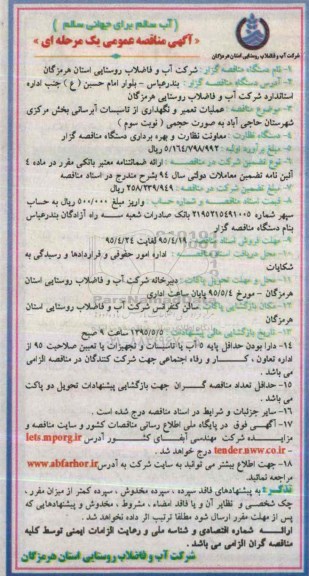 ( آب سالم برای جهانی سالم )
« آگهی مناقصه عمومی یک مرحله ای »
شرکت آب و فاضلاب روستایی استان هرمزگان
۱- نام دستگاه مناقصه گزار : شرکت آب و فاضلاب روستایی استان هرمزگان
۲- آدرس دستگاه مناقصه گزار : بندرعباس - بلوار امام حسین ( ع ) جنب اداره
استاندارد شرکت آب و فاضلاب روستایی هرمزگان
۳- موضوع مناقصه : عملیات تعمیر و نگهداری از تاسیسات آبرسانی بخش مرکزی
شهرستان حاجی آباد به صورت حجمی ( نوبت سوم )
۴- دستگاه نظارت : معاونت نظارت و بهره برداری دستگاه مناقصه گزار
۵- مبلغ برآورد اولیه : ۵/۱۶۴/۷۹۸/۹۹۲ ریال
۶- نوع تضمین شرکت در مناقصه : ارائه ضمانتنامه معتبر بانکی مقرر در ماده ۴
آئین نامه تضمین معاملات دولتی سال ۹۴ بشرح مندرج در اسناد مناقصه
۷- مبلغ تضمین شرکت در مناقصه : ۲۵۸/۲۳۹/۹۴۹ ریال
۸- قیمت اسناد و شماره حساب : واریز مبلغ ۵۰۰/۰۰۰ ریال به حساب
سپهر شماره ۲۱۹۵۲۱۵۴۹۱۰۰۵ بانک صادرات شعبه سه راه آزادگان بندرعباس
بنام دستگاه مناقصه گزار
۹- مهلت فروش اسناد ۹۵/۴/۱۹ لغایت ۹۵/۴/۲۴
۱۰- محل دریافت اسناد مناقصه : اداره امور حقوقی و قراردادها و رسیدگی به
شکایات
۱۱- محل و مهلت تحویل پاکات : دبیرخانه شرکت آب و فاضلاب روستایی استان
هرمزگان - مورخ ۹۵/۵/۴ پایان ساعت اداری
۱۲- مکان بازگشایی پاکات : سالن کنفرانس شرکت آب و فاضلاب روستایی استان
هرمزگان
۱۳- تاریخ بازگشایی مالی پیشنهادات : ۱۳۹۵/۵/۵ ساعت ۹ صبح
۱۴- دارا بودن حداقل پایه ۵ آب یا تاسیسات و تجهیزات یا تعیین صلاحیت ۹۵ از
اداره تعاون ، کار و رفاه اجتماعی جهت شرکت کنندگان در مناقصه الزامی
می باشد .
۱۵- حداقل تعداد مناقصه گران جهت بازگشایی پیشنهادات تحویل دو پاکت
می باشد .
۱۶- سایر جزئیات و شرایط در اسناد مناقصه درج شده است .
۱۷- آگهی فوق در پایگاه ملی اطلاع رسانی مناقصات کشور و سایت مناقصه و
مزایده شرکت مهندسی آبفای کشور آدرس iets.mporg.ir
- tender.nww.co.ir درج خواهد شد .
۱۸- جهت اطلاع بیشتر می توانید به سایت شرکت به آدرس www.abfarhor.ir
مراجعه نمائید.
تذکر : به پیشنهادهای فاقد سپرده ، سپرده مخدوش ، سپرده کمتر از میزان مقرر ،
چک شخصی و نظایر آن و یا فاقد امضاء ، مشروط ، مخدوش و پیشنهادهایی که
پس از مهلت مقرر ارسال شود مطلقا ترتیب اثر داده نخواهد شد .
ارائه شماره اقتصادی و شناسه ملی و رعایت الزامات ایمنی توسط کلیه
مناقصه گران الزامی می باشد .
شرکت آب و فاضلاب روستایی استان هرمزگان